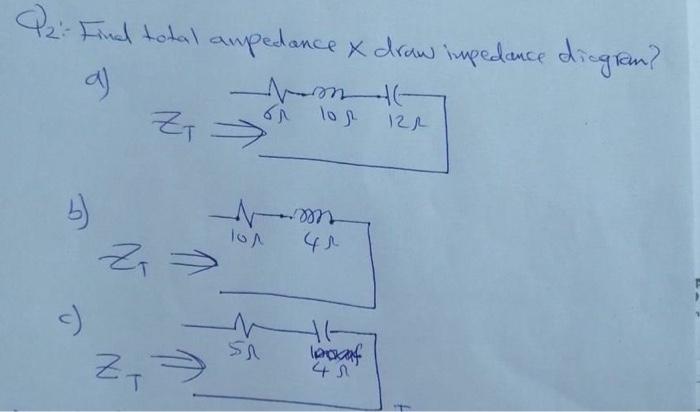 Q2:- Find total ampedance & draw impedance diagram?
a)
6Ω 10Ω 12Ω
ZT ⇒
b)
10Ω 4Ω
ZT ⇒
c)
5Ω
4Ω
ZT ⇒